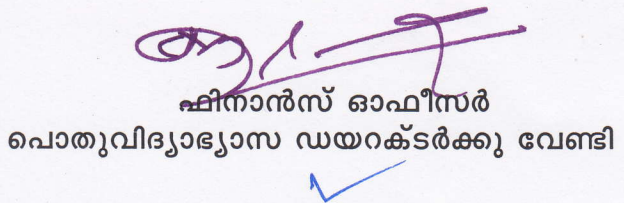 ഫിനാൻസ് ഓഫീസർ
പൊതുവിദ്യാഭ്യാസ ഡയറക്ടർക്കു വേണ്ടി